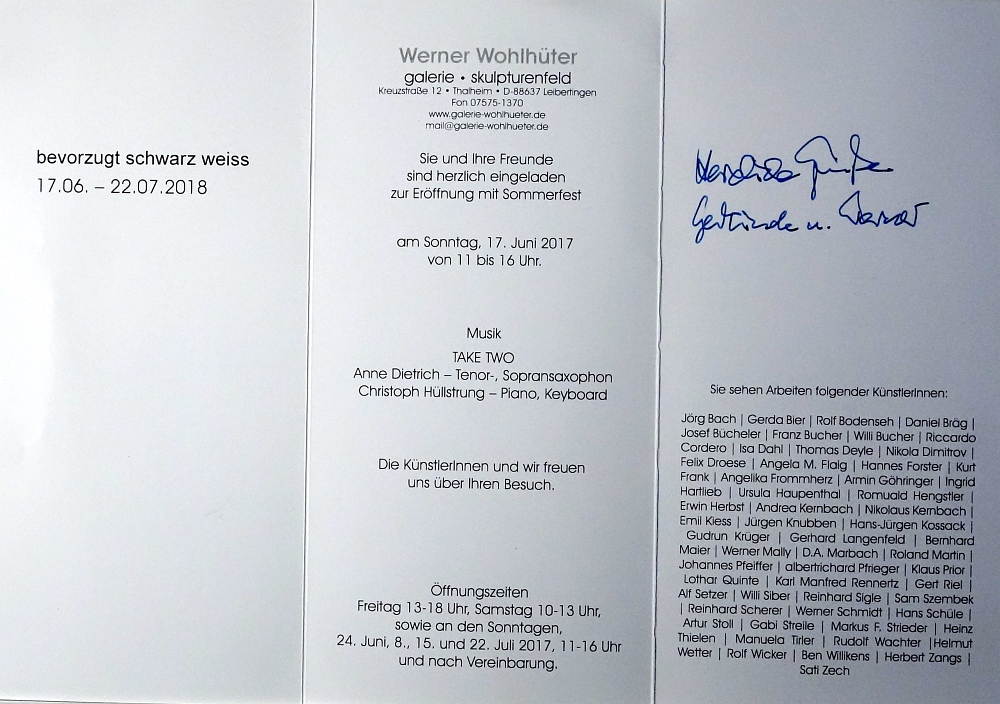 bevorzugt schwarz weiss
17.06. – 22.07.2018
Werner Wohlhüter
galerie • skulpturenfeld
Kreuzstraße 12 • Thalheim • D-88637 Leibertingen
Fon 07575-1370
www.galerie-wohlhueter.de
mail@galerie-wohlhueter.de
Sie und Ihre Freunde
sind herzlich eingeladen
zur Eröffnung mit Sommerfest
am Sonntag, 17. Juni 2017
von 11 bis 16 Uhr.
Musik
TAKE TWO
Anne Dietrich – Tenor-, Sopransaxophon
Christoph Hüllstrung – Piano, Keyboard
Die KünstlerInnen und wir freuen
uns über Ihren Besuch.
Öffnungszeiten
Freitag 13-18 Uhr, Samstag 10-13 Uhr,
sowie an den Sonntagen,
24. Juni, 8., 15. und 22. Juli 2017, 11-16 Uhr
und nach Vereinbarung.
Herzliche Grüße
u. Werner
Sie sehen Arbeiten folgender KünstlerInnen:
Jörg Bach | Gerda Bier | Rolf Bodenseh | Daniel Bräg |
Josef Bücheler | Franz Bucher | Willi Bucher | Riccardo
Cordero | Isa Dahl | Thomas Deyle | Nikola Dimitrov |
Felix Droese | Angela M. Flaig | Hannes Forster | Kurt
Frank | Angelika Frommherz | Armin Göhringer | Ingrid
Hartlieb | Ursula Haupenthal | Romuald Hengstler |
Erwin Herbst | Andrea Kernbach | Nikolaus Kernbach |
Emil Kiess | Jürgen Knubben | Hans-Jürgen Kossack |
Gudrun Krüger | Gerhard Langenfeld | Bernhard
Maier | Werner Mally | D.A. Marbach | Roland Martin |
Johannes Pfeiffer | albertrichard Pfrieger | Klaus Prior |
Lothar Quinte | Karl Manfred Rennertz | Gert Riel |
Alf Setzer | Willi Siber | Reinhard Sigle | Sam Szembek
| Reinhard Scherer | Werner Schmidt | Hans Schüle |
Artur Stoll | Gabi Streile | Markus F. Strieder | Heinz
Thielen | Manuela Tirler | Rudolf Wachter |Helmut
Wetter | Rolf Wicker | Ben Willikens | Herbert Zangs |
Sati Zech